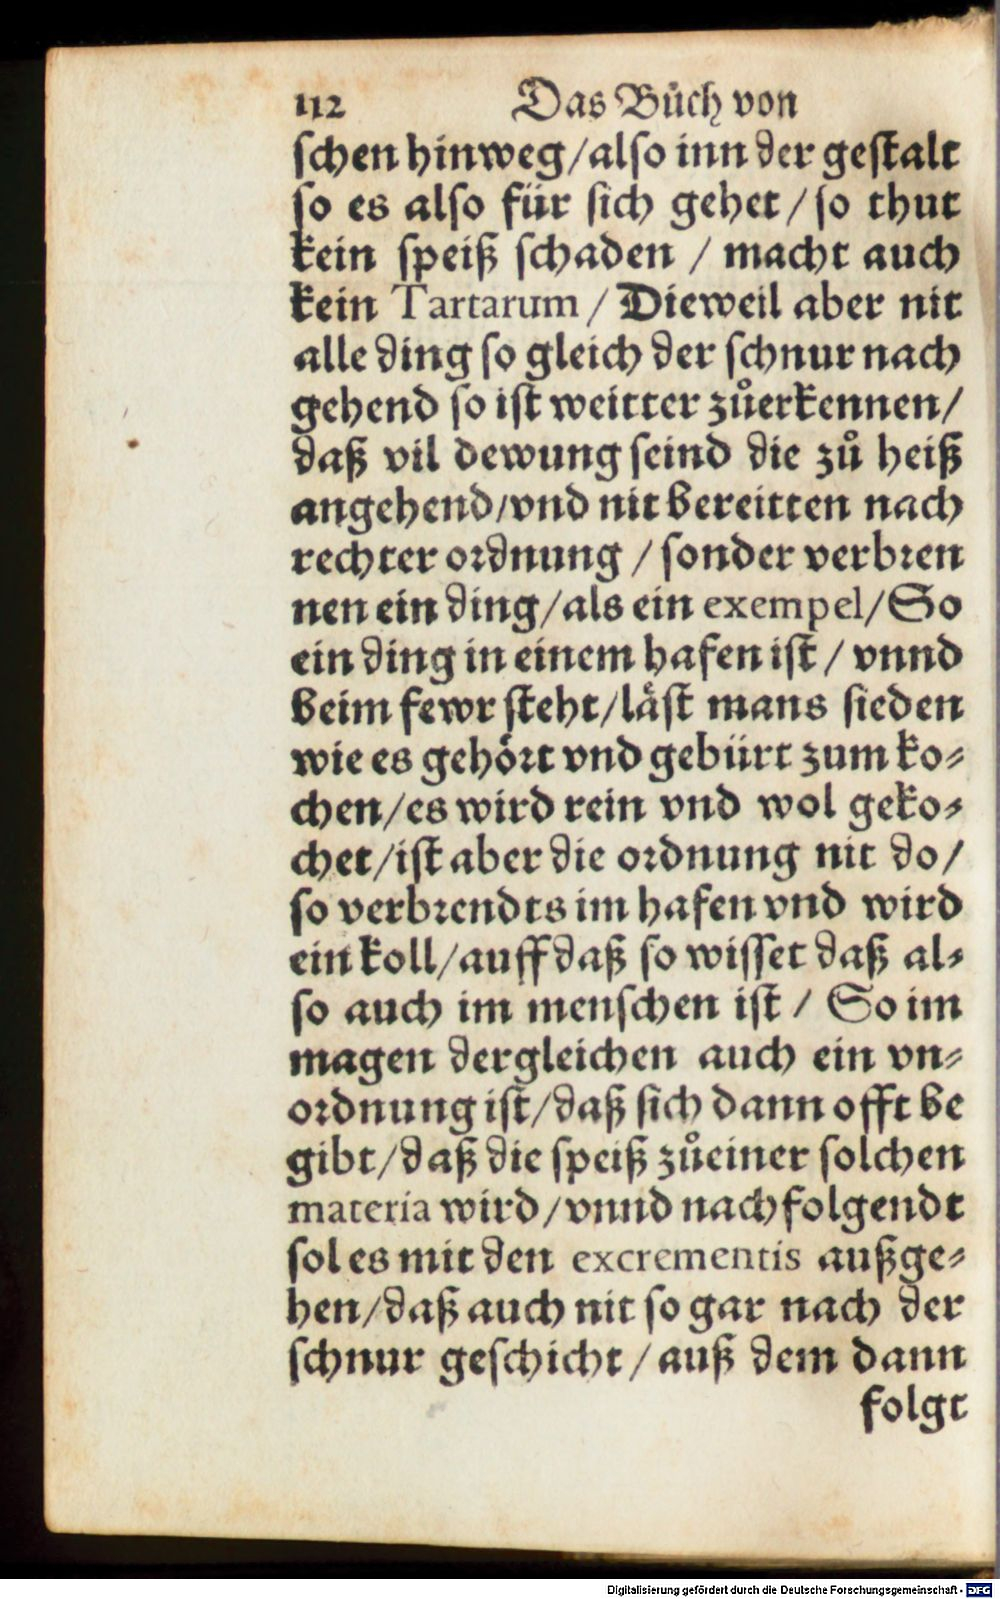 112 Das Bůch von
schen hinweg/also inn der gestalt
so es also für sich gehet / so thut
kein speiß schaden / macht auch
kein Tartarum / Dieweil aber nit
alle ding so gleich der schnur nach
gehend so ist weitter zůerkennen/
daß vil dewung seind die zů heiß
angehend/vnd nit bereitten nach
rechter ordnung / sonder verbren
nen ein ding/als ein exempel/So
ein ding in einem hafen ist / vnnd
beim fewr steht/läst mans sieden
wie es gehört vnd gebürt zum ko-
chen/es wird rein vnd wol geko-
chet/ist aber die ordnung nit do/
so verbrendts im hafen vnd wird
ein koll/auff daß so wisset daß al-
so auch im menschen ist / So im
magen dergleichen auch ein vn-
ordnung ist/daß sich dann offt be
gibt/daß die speiß zůeiner solchen
materia wird/vnnd nachfolgendt
sol es mit den excrementis außge-
hen/daß auch nit so gar nach der
schnur geschicht/auß dem dann
folgt
Digitalisierung gefördert durch die Deutsche Forschungsgemeinschaft - DFG